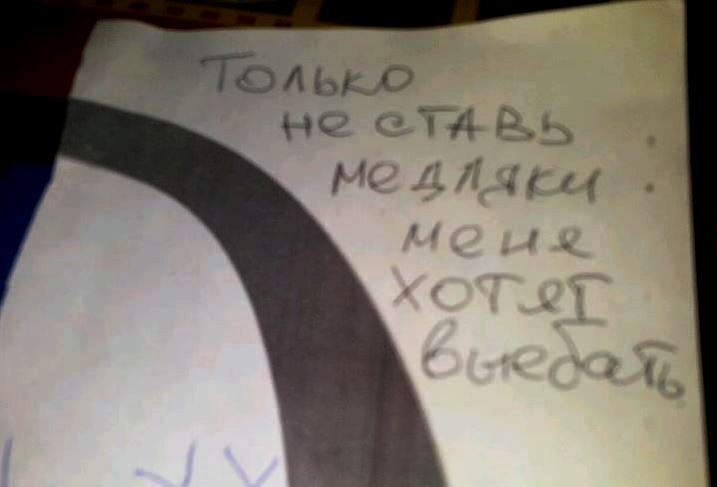 Только
не ставь
медляки.
меня
хотят
выебать